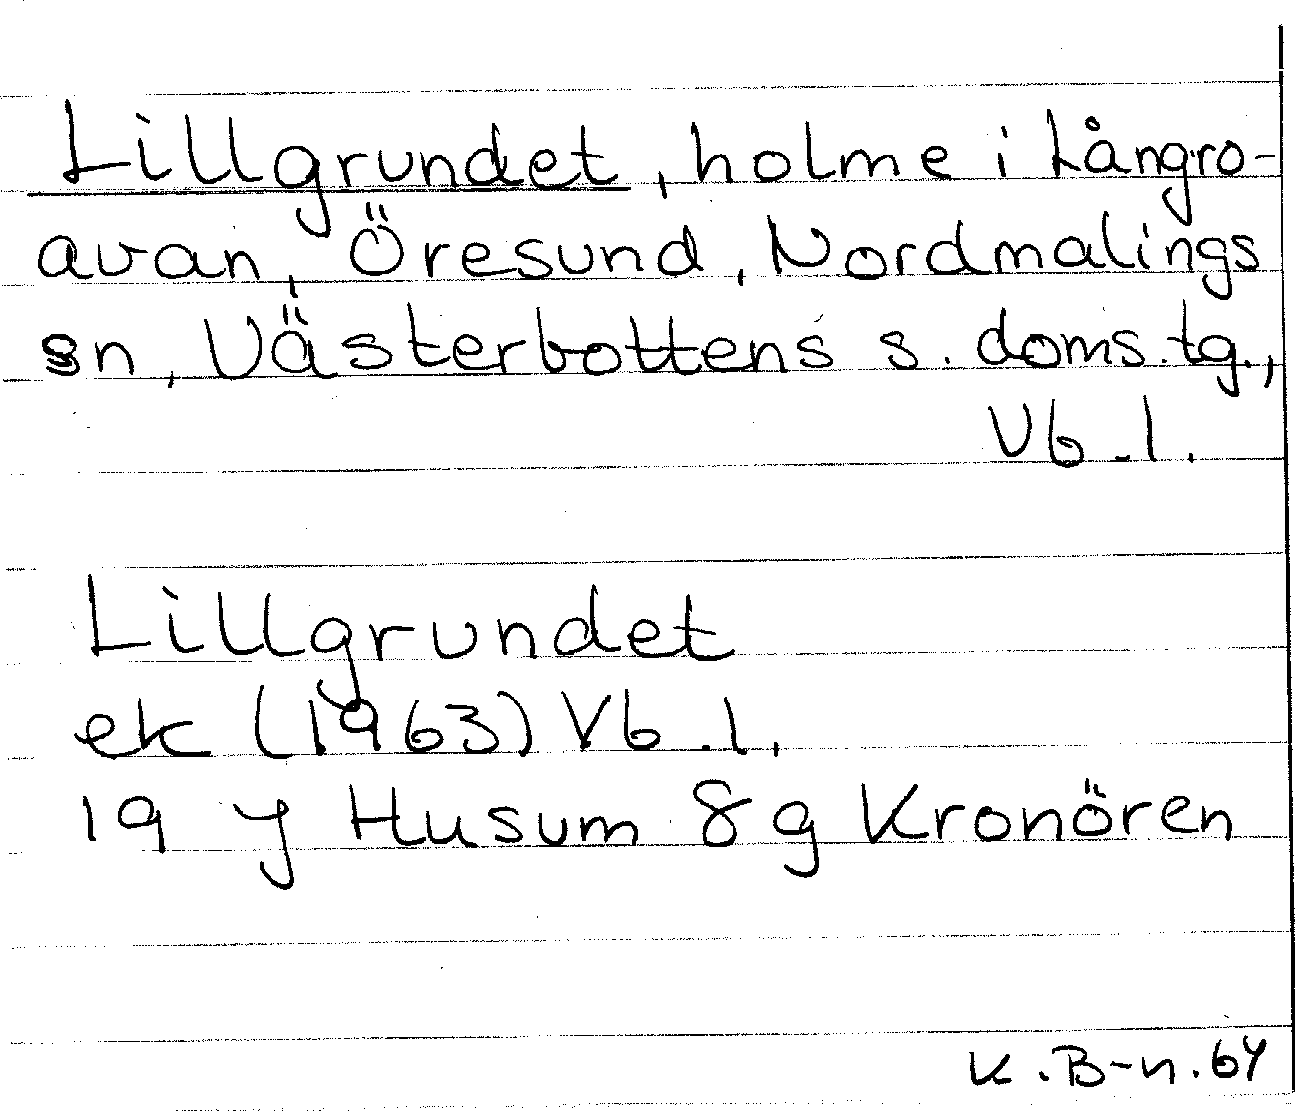 Lillgrundet, holme i Långro-
avan, Öresund, Nordmalings
sn, Västerbottens s. doms.tg.,
Vb. l.
Lillgrundet
ek (1963) Vb. l.
19 J Husum 8 g Kronören
K. B-n. 64